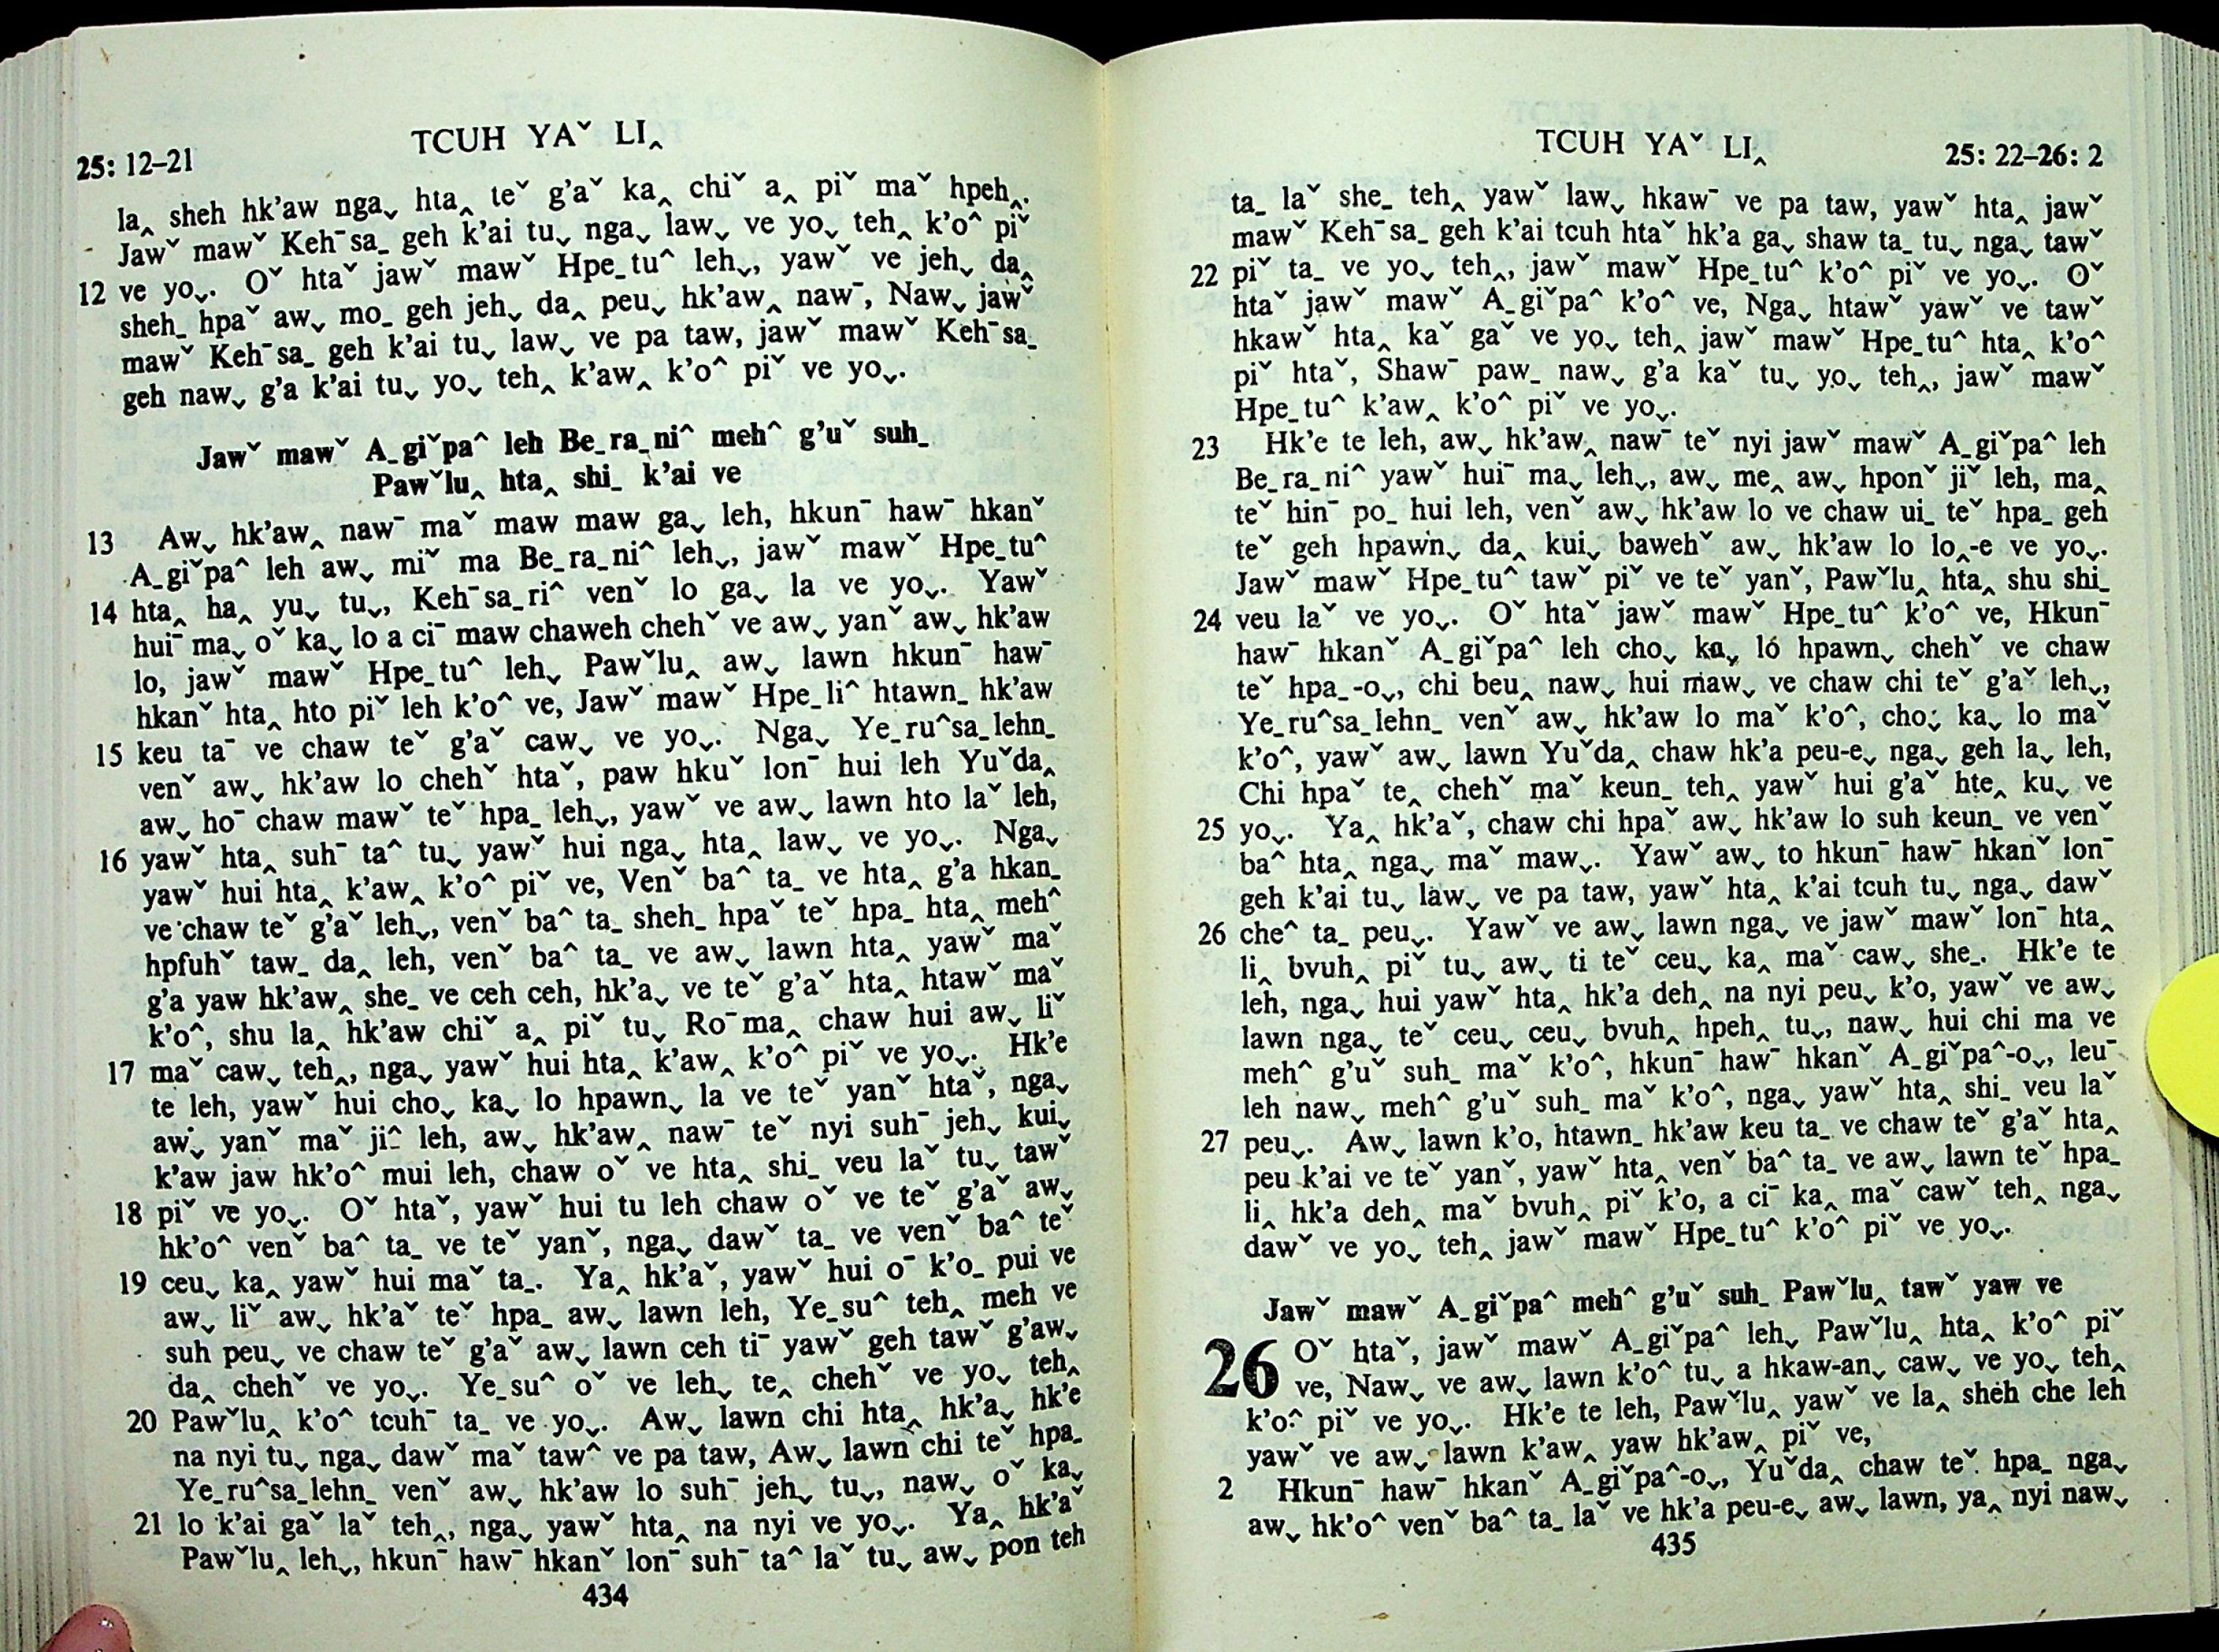 25: 12–21
TCUH YAˇ LI‸
la‸ sheh hk'aw ngaˬ hta‸ teˇ g'aˇ ka‸ chiˇ a‸ piˇ maˇ hpeh‸.
Jawˇ mawˇ Kehˉsa_ geh k'ai tuˬ ngaˬ lawˬ ve yoˬ teh‸ k'o^ piˇ
12 ve yoˬ. Oˇ htaˇ jawˇ mawˇ Hpe_tu^ lehˬ, yawˇ ve jehˬ da‸
sheh_ hpaˇ awˬ mo_ geh jehˬ da‸ peuˬ hk'aw‸ nawˉ, Nawˬ jawˇ
mawˇ Kehˉsa_ geh k'ai tuˬ lawˬ ve pa taw, jawˇ mawˇ Kehˉsa_
geh nawˬ g'a k'ai tuˬ yoˬ teh‸ k'aw‸ k'o^ piˇ ve yoˬ.
Jawˇ mawˇ A_giˇpa^ leh Be_ra_ni^ meh^ g'uˇ suh_
Pawˇlu‸ hta‸ shi_ k'ai ve
13 Awˬ hk'aw‸ nawˉ maˇ maw maw gaˬ leh, hkunˉ hawˉ hkanˇ
A_giˇpa^ leh awˬ miˇ ma Be_ra_ni^ lehˬ, jawˇ mawˇ Hpe_tu^
14 hta‸ ha‸ yuˬ tuˬ, Kehˉsa_ri^ venˇ lo gaˬ la ve yoˬ. Yawˇ
huiˉ maˬ oˇ kaˬ lo a ciˉ maw chaweh chehˇ ve awˬ yanˇ awˬ hk'aw
lo, jawˇ mawˇ Hpe_tu^ lehˬ Pawˇlu‸ awˬ lawn hkunˉ hawˉ
hkanˇ hta‸ hto piˇ leh k'o^ ve, Jawˇ mawˇ Hpe_li^ htawn_ hk'aw
15 keu taˉ ve chaw teˇ g'aˇ cawˬ ve yoˬ. Ngaˬ Ye_ru^sa_lehn_
venˇ awˬ hk'aw lo chehˇ htaˇ, paw hkuˇ lonˉ hui leh Yuˇda‸
awˬ hoˉ chaw mawˇ teˇ hpa_ lehˬ, yawˇ ve awˬ lawn hto laˇ leh,
16 yawˇ hta‸ suhˉ ta^ tuˬ yawˇ hui ngaˬ hta‸ lawˬ ve yoˬ. Ngaˬ
yawˇ hui hta‸ k'aw‸ k'o^ piˇ ve, Venˇ ba^ ta_ ve hta‸ g'a hkan_
ve chaw teˇ g'aˇ lehˬ, venˇ ba^ ta_ sheh_ hpaˇ teˇ hpa_ hta‸ meh^
hpfuhˇ taw_ da‸ leh, venˇ ba^ ta_ ve awˬ lawn hta‸ yawˇ maˇ
g'a yaw hk'aw‸ she_ ve ceh ceh, hk'aˬ ve teˇ g'aˇ hta‸ htawˇ maˇ
k'o^, shu la‸ hk'aw chiˇ a‸ piˇ tuˬ Roˉma‸ chaw hui awˬ liˇ
17 maˇ cawˬ teh‸, ngaˬ yawˇ hui hta‸ k'aw‸ k'o^ piˇ ve yoˬ. Hk'e
te leh, yawˇ hui choˬ kaˬ lo hpawnˬ la ve teˇ yanˇ htaˇ, ngaˬ
awˬ yanˇ maˇ ji^ leh, awˬ hk'aw‸ nawˉ teˇ nyi suhˉ jehˬ kuiˬ
k'aw jaw hk'o^ mui leh, chaw oˇ ve hta‸ shi_ veu laˇ tuˬ tawˇ
18 piˇ ve yoˬ. Oˇ htaˇ, yawˇ hui tu leh chaw oˇ ve teˇ g'aˇ awˬ
hk'o^ venˇ ba^ ta_ ve teˇ yanˇ, ngaˬ dawˇ ta_ ve venˇ ba^ teˇ
19 ceuˬ ka‸ yawˇ hui maˇ ta_. Ya‸ hk'aˇ, yawˇ hui oˉ k'o_ pui ve
awˬ liˇ awˬ hk'aˇ teˇ hpa_ awˬ lawn leh, Ye_su^ teh‸ meh ve
suh peuˬ ve chaw teˇ g'aˇ awˬ lawn ceh tiˉ yawˇ geh tawˇ g'awˬ
da‸ chehˇ ve yoˬ. Ye_su^ oˇ ve lehˬ te‸ chehˇ ve yoˬ teh‸
20 Pawˇlu‸ k'o^ tcuhˉ ta_ ve yoˬ. Awˬ lawn chi hta‸ hk'aˬ hk'e
na nyi tuˬ ngaˬ dawˇ maˇ taw^ ve pa taw, Awˬ lawn chi teˇ hpa_
Ye_ru^sa_lehn_ venˇ awˬ hk'aw lo suhˉ jehˬ tuˬ, nawˬ oˇ kaˬ
21 lo k'ai gaˇ laˇ teh‸, ngaˬ yawˇ hta‸ na nyi ve yoˬ. Ya‸ hk'aˇ
Pawˇlu‸ lehˬ, hkunˉ hawˉ hkanˇ lonˉ suhˉ ta^ laˇ tuˬ awˬ pon teh
434
TCUH YAˇ LI‸
25: 22–26: 2
ta_ laˇ she_ teh‸ yawˇ lawˬ hkawˉ ve pa taw, yawˇ hta‸ jawˇ
mawˇ Kehˉsa_ geh k'ai tcuh htaˇ hk'a gaˬ shaw ta_ tuˬ ngaˬ tawˇ
22 piˇ ta_ ve yoˬ teh‸, jawˇ mawˇ Hpe_tu^ k'o^ piˇ ve yoˬ. Oˇ
htaˇ jawˇ mawˇ A_giˇpa^ k'o^ ve, Ngaˬ htawˇ yawˇ ve tawˇ
hkawˇ hta‸ kaˇ gaˇ ve yoˬ teh‸ jawˇ mawˇ Hpe_tu^ hta‸ k'o^
piˇ htaˇ, Shawˉ paw_ nawˬ g'a kaˇ tuˬ yoˬ teh‸, jawˇ mawˇ
Hpe_tu^ k'aw‸ k'o^ piˇ ve yoˬ.
23 Hk'e te leh, awˬ hk'aw‸ nawˉ teˇ nyi jawˇ mawˇ A_giˇpa^ leh
Be_ra_ni^ yawˇ huiˉ maˬ lehˬ, awˬ me‸ awˬ hponˇ jiˇ leh, ma‸
teˇ hinˉ po_ hui leh, venˇ awˬ hk'aw lo ve chaw ui_ teˇ hpa_ geh
teˇ geh hpawnˬ da‸ kuiˬ bawehˇ awˬ hk'aw lo lo‸-e ve yoˬ.
Jawˇ mawˇ Hpe_tu^ tawˇ piˇ ve teˇ yanˇ, Pawˇlu‸ hta‸ shu shi_
24 veu laˇ ve yoˬ. Oˇ htaˇ jawˇ mawˇ Hpe_tu^ k'o^ ve, Hkunˉ
hawˉ hkanˇ A_giˇpa^ leh choˬ kaˬ lo hpawnˬ chehˇ ve chaw
teˇ hpa_-oˬ, chi beu‸ nawˬ hui mawˬ ve chaw chi teˇ g'aˇ lehˬ,
Ye_ru^sa_lehn_ venˇ awˬ hk'aw lo maˇ k'o^, choˬ kaˬ lo maˇ
k'o^, yawˇ awˬ lawn Yuˇda‸ chaw hk'a peu-eˬ ngaˬ geh laˬ leh,
Chi hpaˇ te‸ chehˇ maˇ keun_ teh‸ yawˇ hui g'aˇ hte‸ kuˬ ve
25 yoˬ. Ya‸ hk'aˇ, chaw chi hpaˇ awˬ hk'aw lo suh keun_ ve venˇ
ba^ hta‸ ngaˬ maˇ mawˬ. Yawˇ awˬ to hkunˉ hawˉ hkanˇ lonˉ
geh k'ai tuˬ lawˬ ve pa taw, yawˇ hta‸ k'ai tcuh tuˬ ngaˬ dawˇ
26 che^ ta_ peuˬ. Yawˇ ve awˬ lawn ngaˬ ve jawˇ mawˇ lonˉ hta‸
li‸ bvuh‸ piˇ tuˬ awˬ ti teˇ ceuˬ ka‸ maˇ cawˬ she_. Hk'e te
leh, ngaˬ hui yawˇ hta‸ hk'a deh‸ na nyi peuˬ k'o, yawˇ ve awˬ
lawn ngaˬ teˇ ceuˬ ceuˬ bvuh‸ hpeh‸ tuˬ, nawˬ hui chi ma ve
meh^ g'uˇ suh_ maˇ k'o^, hkunˉ hawˉ hkanˇ A_giˇpa^-oˬ, leuˉ
leh nawˬ meh^ g'uˇ suh_ maˇ k'o^, ngaˬ yawˇ hta‸ shi_ veu laˇ
27 peuˬ. Awˬ lawn k'o, htawn_ hk'aw keu ta_ ve chaw teˇ g'aˇ hta‸
peu k'ai ve teˇ yanˇ, yawˇ hta‸ venˇ ba^ ta_ ve awˬ lawn teˇ hpa_
li‸ hk'a deh‸ maˇ bvuh‸ piˇ k'o, a ciˉ ka‸ maˇ cawˇ teh‸ ngaˬ
dawˇ ve yoˬ teh‸ jawˇ mawˇ Hpe_tu^ k'o^ piˇ ve yoˬ.
Jawˇ mawˇ A_giˇpa^ meh^ g'uˇ suh_ Pawˇlu‸ tawˇ yaw ve
26 Oˇ htaˇ, jawˇ mawˇ A_giˇpa^ lehˬ Pawˇlu‸ hta‸ k'o^ piˇ
ve, Nawˬ ve awˬ lawn k'o^ tuˬ a hkaw-anˬ cawˬ ve yoˬ teh‸
k'o^ piˇ ve yoˬ. Hk'e te leh, Pawˇlu‸ yawˇ ve la‸ sheh che leh
yawˇ ve awˬ lawn k'aw‸ yaw hk'aw‸ piˇ ve,
2 Hkunˉ hawˉ hkanˇ A_giˇpa^-oˬ, Yuˇda‸ chaw teˇ hpa_ ngaˬ
awˬ hk'o^ venˇ ba^ ta_ laˇ ve hk'a peu-eˬ awˬ lawn, ya‸ nyi nawˬ
435